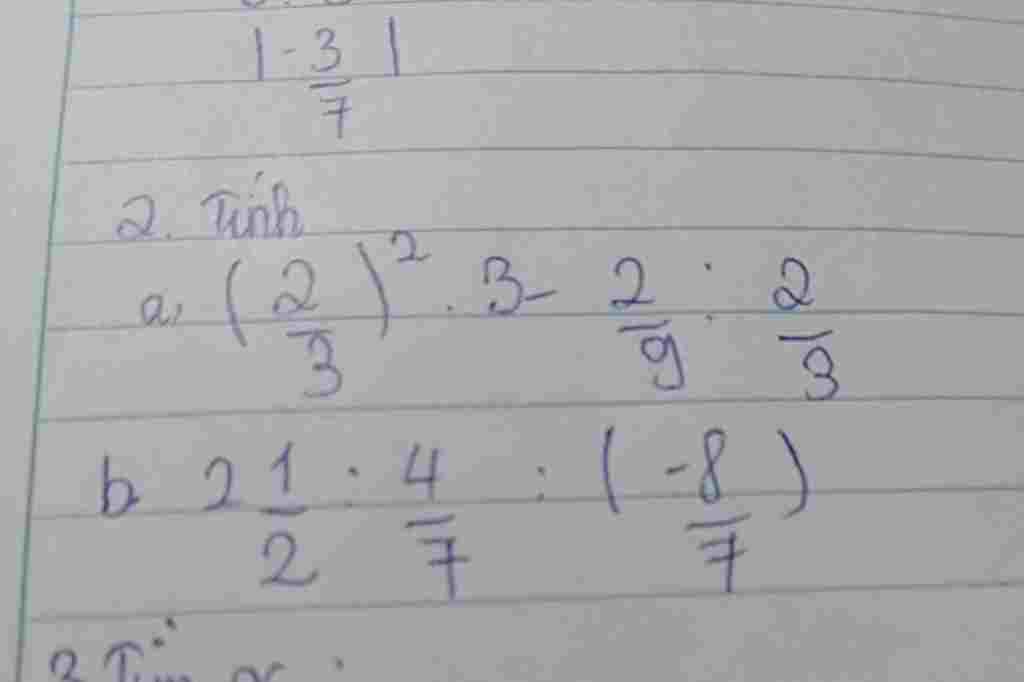 |-3/7|
2. Tính
a, (2/3)² . 3 - 2/9 : 2/3
b 2 1/2 . 4/7 : (-8/7)
3 Tìm x :